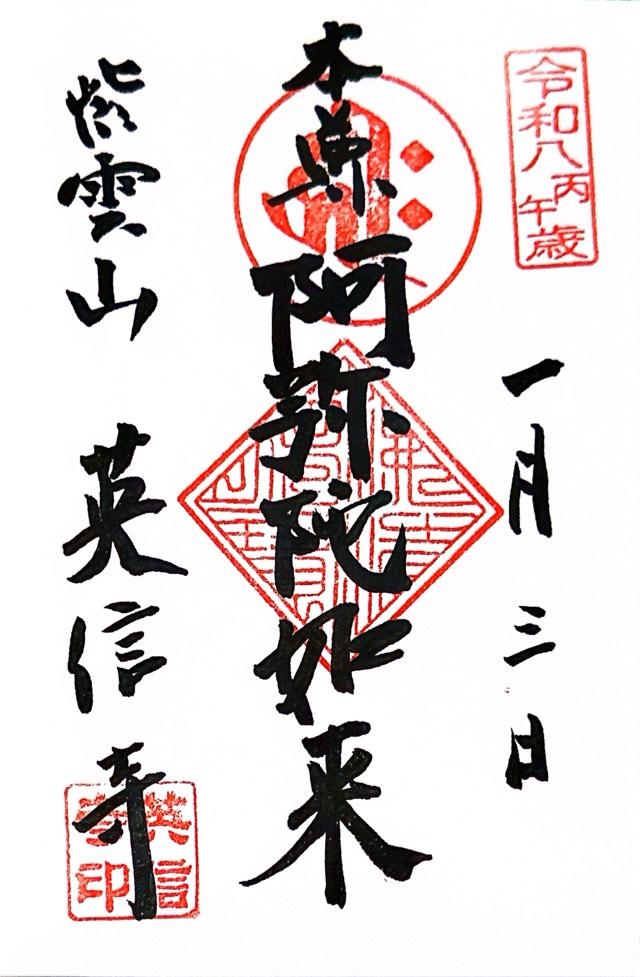 令和八丙午歳
一月三日
本尊阿弥陀如来
紫雲山 英信寺
英信寺印